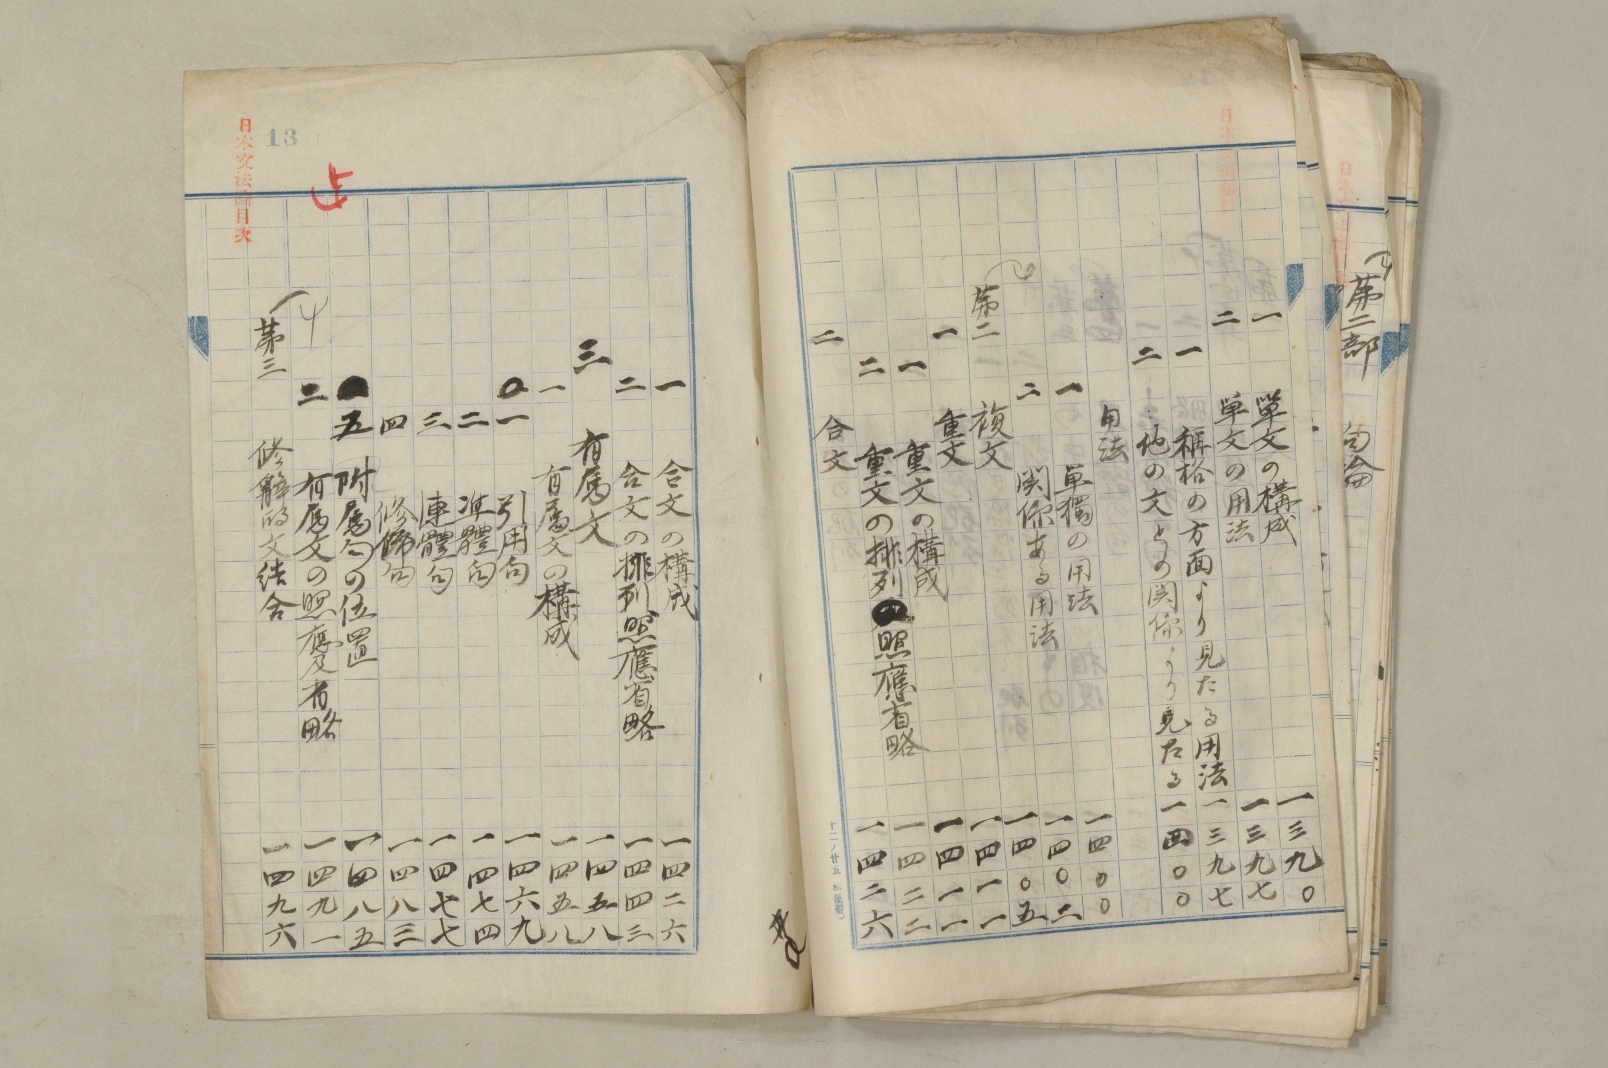 第二部
一 単文の構成 一三九〇
二 単文の用法 一三九七
一 稱格の方面より見たる用法 一三九七
二 他の文との関係より見たる
用法 一四〇〇
一 単獨の用法 一四〇二
二 関係ある用法 一四〇五
第二 複文 一四一一
一 重文 一四一一
一 重文の構成 一四二二
二 重文の排列照應省略 一四二六
二 合文
十二ノ廿五
一 合文の構成 一四二六
二 合文の排列照應省略 一四四三
三 有属文 一四五八
一 有属文の構成 一四五八
一 引用句 一四六九
二 準體句 一四七四
三 連體句 一四七七
四 修飾句 一四八三
五 附属句の位置 一四八五
二 有属文の照應及省略 一四九一
第三 修辞的文結合 一四九六
日本文法論目次
13